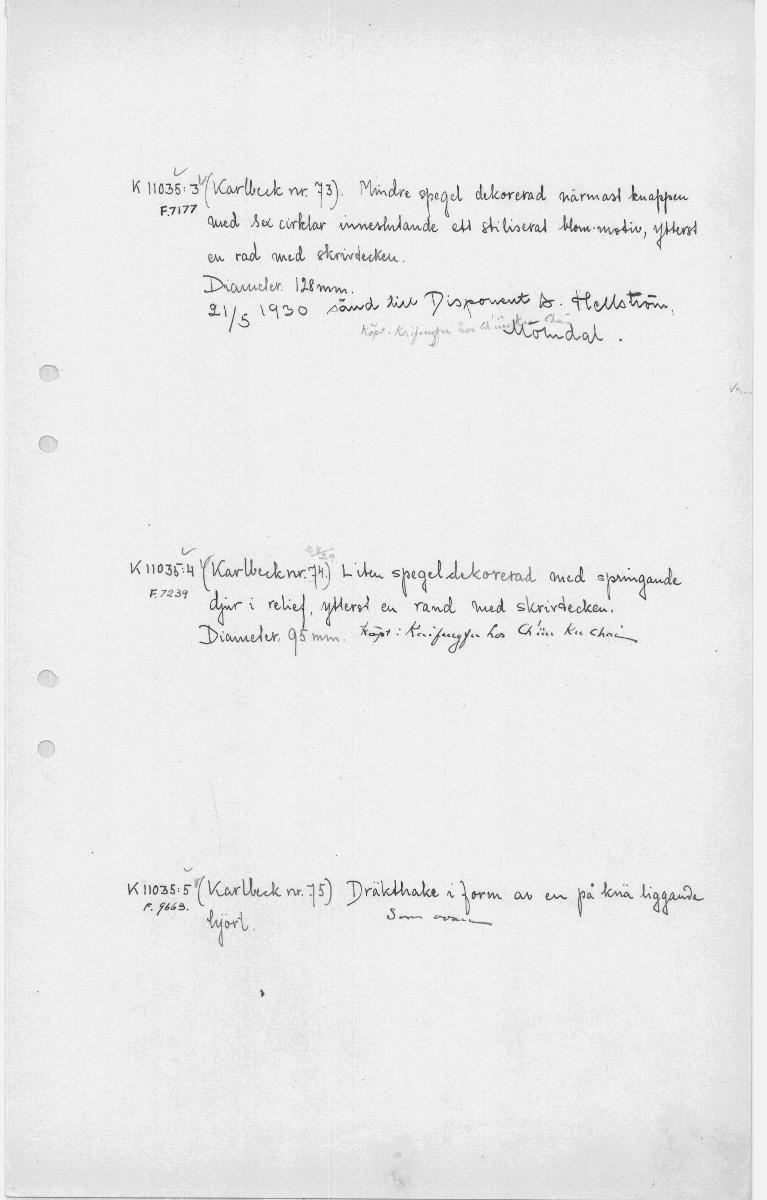 K 11035:3 (Karlbeck nr. 73). Mindre spegel dekorerad närmast knappen
F.7177
med sex cirklar inneslutande ett stiliserat blom-motiv, ytterst
en rad med skrivtecken.
Diameter. 128 mm.
21/5 1930 sänd till Disponent B. Hellström,
Mölndal.
Köpt: Kaifengfu hos Ch'ün Ku Chai
K 11035:4 (Karlbeck nr. 74.) Liten spegel dekorerad med springande
F.7239
djur i relief, ytterst en rand med skrivtecken.
Diameter. 95 mm. Köpt: Kaifengfu hos Ch'ün Ku Chai
K 11035:5 (Karlbeck nr. 75) Dräkthake i form av en på knä liggande
F. 9663.
hjört.
Som ovan